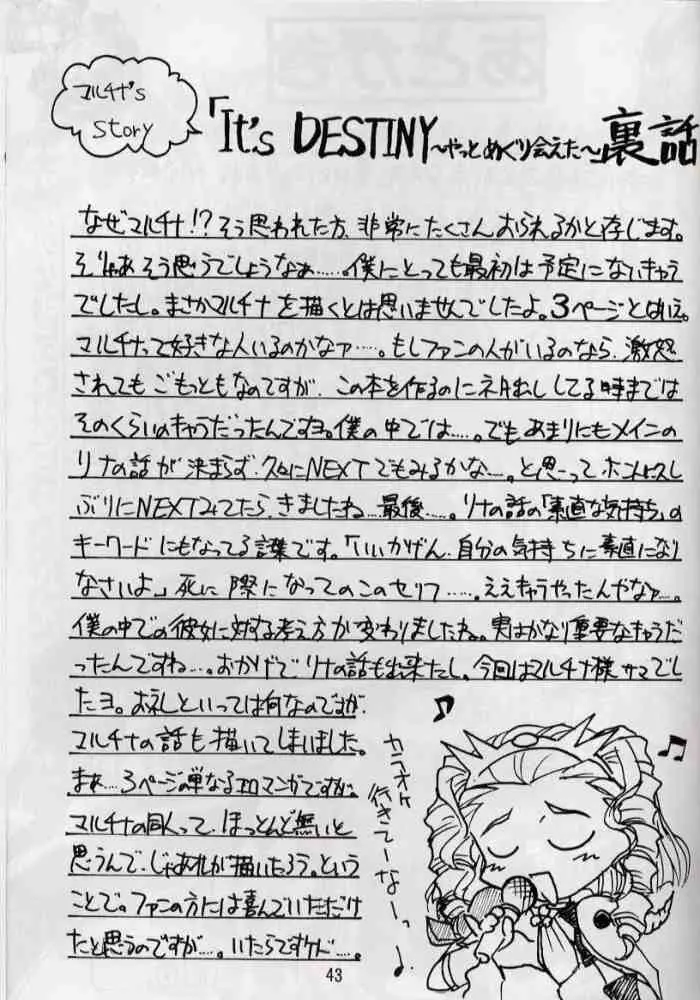 マルチナ's
Story
「It's DESTINY～やっとめぐり会えた～」裏話
なぜマルチナ!?そう思われた方、非常にたくさんおられるかと存じます。
そりゃあそう思うでしょうなぁ……。僕にとっても最初は予定にないキャラ
でしたし。まさかマルチナを描くとは思いませんでしたよ。3ページとはいえ。
マルチナって好きな人いるのかなァ……。もしファンの人がいるのなら、激怒
されてもごもっともなのですが、この本を作るのにネタ出ししてる時までは
そのくらいのキャラだったんですヨ。僕の中では……。でもあまりにもメインの
リナの話が決まらず、久々にNEXTでもみるかな……。と思ってホントに久し
ぶりにNEXTみてたら、きましたね…最後……。リナの話の「素直な気持ち」の
キーワードにもなってる言葉です。「いいかげん、自分の気持ちに素直になり
なさいよ」死に際になってのこのセリフ……。ええキャラやったんやなァ…。
僕の中での彼女に対する考え方が変わりましたね。実はかなり重要なキャラだ
ったんですね…。おかげでリナの話も出来たし、今回はマルチナ様サマでし
たヨ。お礼といっては何なのですが、
マルチナの話も描いてしまいました。
まぁ…3ページの単なるエロマンガですが。
マルチナの同人って、ほとんど無いと
思うんで、じゃあオレが描いたろう。という
ことで。ファンの方には喜んでいただけ
たと思うのですが…。いたらですケド…。
カラオケ
行きてーなーっ
43